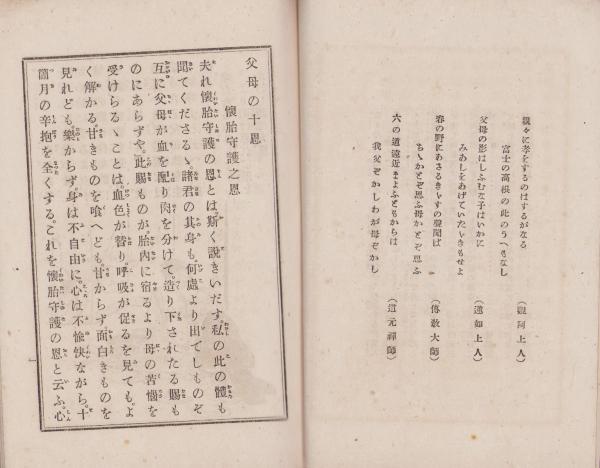 親々に孝をするのはするがなる
富士の高根の此のうへもなし
（觀阿上人）
父母の影はしふむな子はいかに
みあしをあげていたゞきもせよ
（蓮如上人）
春の野にあさるきゞすの聲聞ば
ちゝかとぞ思ふ母かとぞ思ふ
（傳敎大師）
六の道遠近まよふともからは
我父ぞかしわが母ぞかし
（道元禪師）
父母の十恩
懷胎守護之恩
夫れ懷胎守護の恩とは。斯く說きいだす。私の此の體も
聞てくださるゝ。諸君の其身も。何處より出でしものぞ
互に父母が血を配り肉を分けて。造り下されたる賜も
のにあらずや。此賜ものが。胎内に宿るより母の苦惱を
受けらるゝことは。血色が替り。呼吸が促るを見ても。よ
く解かる。甘きものを喰へども。甘からず。面白きものを
見れども。樂からず。身は不自由に。心は不愉快ながら。十
箇月の辛抱を全くする。これを懷胎守護の恩と云ふ。心
一